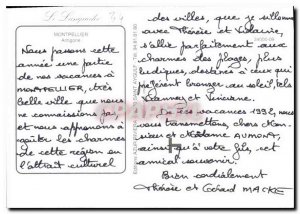 Le Languedoc
MONTPELLIER
Antigone
Nous passons cette
année une partie
de nos vacances à
MONTPELLIER, très
belle ville que nous
ne connaissions pas
et nous apprenons à
goûter les charmes
de cette région où
l'attrait culturel
des villes, que je sillonne
avec Thérèse et
s'allie parfaitement aux
charmes des plages, plus
ludiques destinées à ceux qui
préfèrent bronzer au soleil, tels
et Vinciane.
De ces vacances 1992, nous
vous transmettons, chers Mon-
sieur et Madame AUMONT,
ainsi qu'à votre fils, cet
amical souvenir.
Bien cordialement
Thérèse et Gérard MACKE